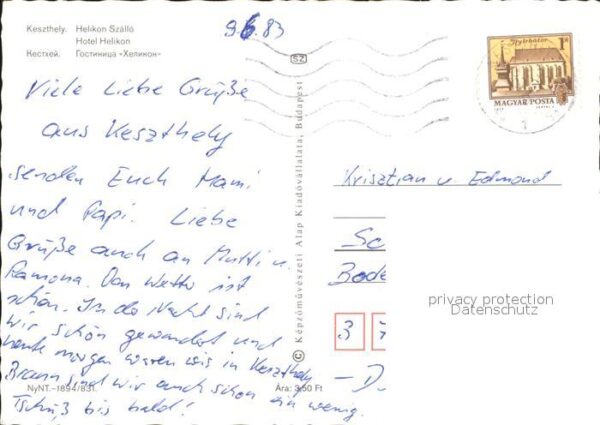 Keszthely. Helikon Szálló
Hotel Helikon
Кестхей. Гостиница «Хеликон»
9.6.83
SZ
Nyírbátor
1 Ft
MAGYAR POSTA
Viele Liebe Grüße
aus Keszthely
senden Euch Mami
und Papi. Liebe
Grüße auch an Mutti u.
Ramona. Das Wetter ist
schön. In der Nacht sind
wir schön gewandert und
heute morgen waren wir in Keszthely
Braun sind wir auch schon ein wenig.
Tschüß bis bald!
© Képzőművészeti Alap Kiadóvállalata, Budapest
Krisztian u. Edmond
Sc
Bode
privacy protection
Datenschutz
3
– D
NyNT.–1894/831.
Ára: 3,60 Ft